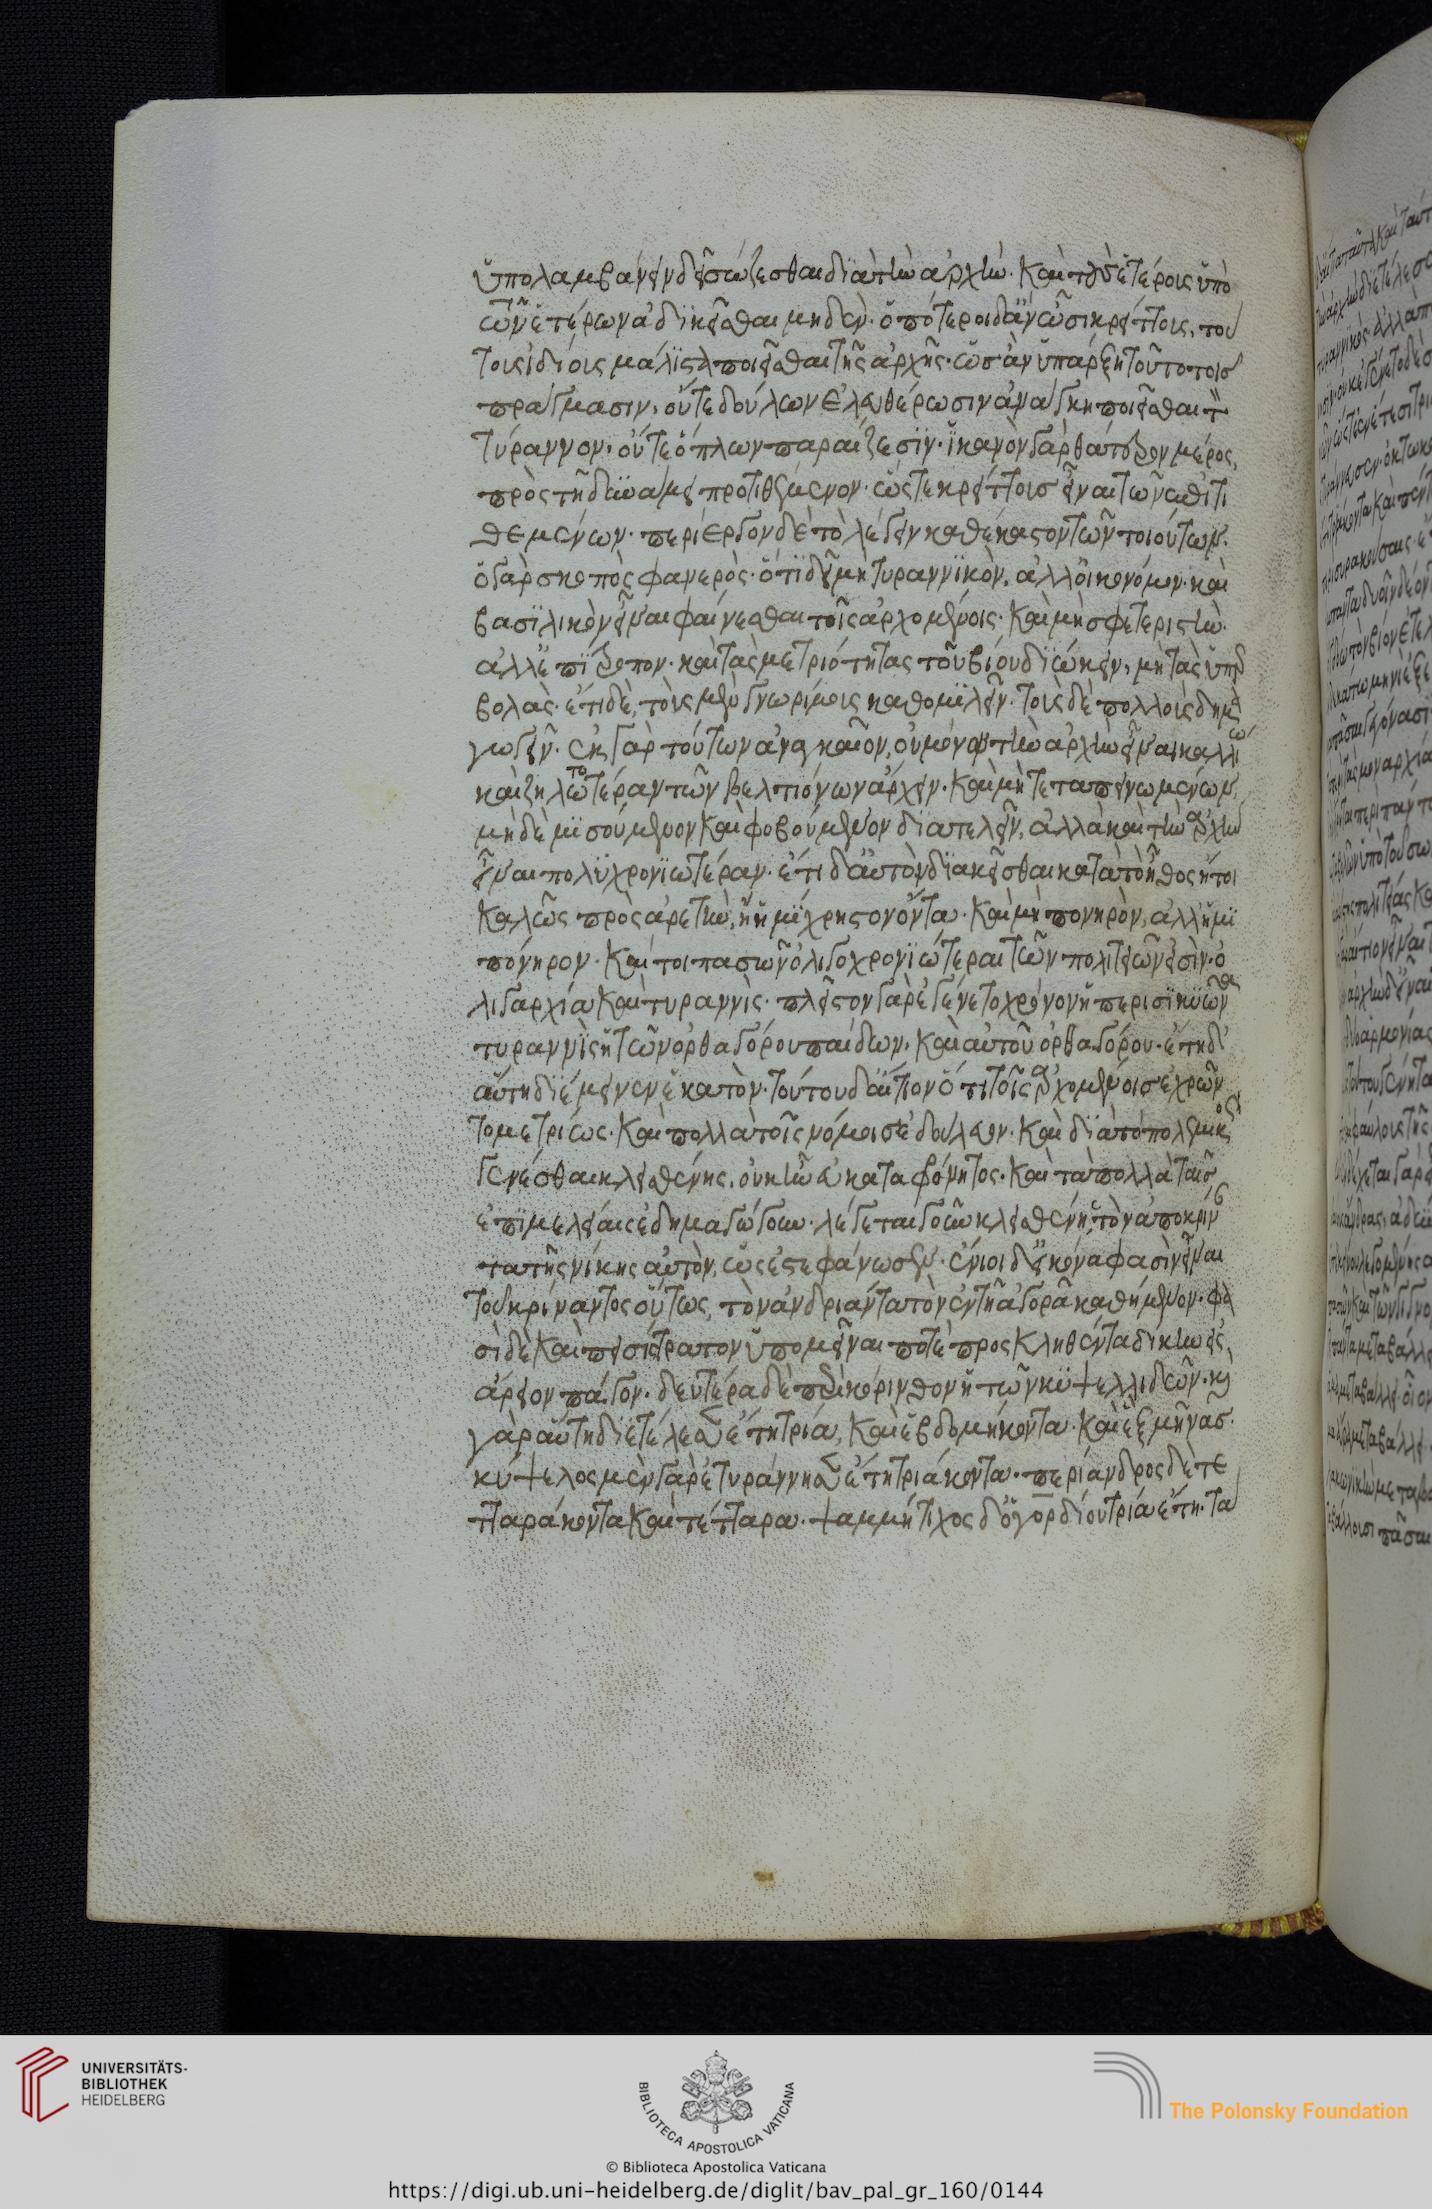 ὑπολαμβάνειν δεῖ σώζεσθαι διὰ τὴν ἀρχήν· καὶ τοὺς ἑτέρους ὑπὸ
τῶν ἑτέρων ἀδικεῖσθαι μηδέν· ὁπότεροι δ' ἂν ὦσι κρείττους, τού
τους ἰδίους μάλιστα ποιεῖσθαι τῆς ἀρχῆς· ὡς ἂν ὑπάρξη τοῦτο τοῖς
πράγμασιν, οὔτε δούλων ἐλευθέρωσιν ἀνάγκη ποιεῖσθαι τὸν
τύραννον, οὔτε ὅπλων παραίρεσιν· ἱκανὸν γὰρ θάτερον μέρος,
πρὸς τῇ δυνάμει προστιθέμενον· ὥστε κρείττους εἶναι τῶν ἐπιτι
θεμένων· περίεργον δὲ τὸ λέγειν καθέκαστον τῶν τοιούτων·
ὁ γὰρ σκοπὸς φανερός· ὅτι δεῖ μὴ τυραννικὸν, ἀλλ' οἰκονόμον· καὶ
βασιλικὸν εἶναι φαίνεσθαι τοῖς ἀρχομένοις· καὶ μὴ σφετεριστὴν·
ἀλλ' ἐπίτροπον· καὶ τὰς μετριότητας τοῦ βίου διώκειν, μὴ τὰς ὑπερ
βολάς· ἔτι δὲ, τοὺς μὲν γνωρίμους καθομιλεῖν· τοὺς δὲ πολλοὺς δημα
γωγεῖν· ἐκ γὰρ τούτων ἀναγκαῖον, οὐ μόνον τὴν ἀρχὴν εἶναι καλλίω
καὶ ζηλωτοτέραν τῶν βελτιόνων ἄρχειν· καὶ μὴ τεταπεινωμένων·
μηδὲ μισούμενον καὶ φοβούμενον διατελεῖν, ἀλλὰ καὶ τὴν ἀρχὴν
εἶναι πολυχρονιωτέραν· ἔτι δ' αὐτὸν διακεῖσθαι κατὰ τὸ ἦθος ἤτοι
καλῶς πρὸς ἀρετὴν, ἢ ἡμίχρηστον ὄντα· καὶ μὴ πονηρὸν, ἀλλ' ἡμι
πόνηρον· καίτοι πασῶν ὀλιγοχρονιώτεραι τῶν πολιτειῶν εἰσὶν· ὀ
λιγαρχία καὶ τυραννὶς· πλεῖστον γὰρ ἐγένετο χρόνον ἡ περὶ σικυῶνα
τυραννὶς ἡ τῶν ὀρθαγόρου παίδων· καὶ αὐτοῦ ὀρθαγόρου· ἔτη δ'
αὕτη διέμεινεν ἑκατὸν· τούτου δ' αἴτιον ὅτι τοῖς ἀρχομένοις ἐχρῶν
το μετρίως· καὶ πολλὰ τοῖς νόμοις ἐδούλευον· καὶ διὰ τὸ πολεμικὸς
γενέσθαι κλεισθένης, οὐκ ἦν εὐκαταφρόνητος· καὶ τὰ πολλὰ ταῖς
ἐπιμελείαις ἐδημαγώγουν· λέγεται γοῦν κλεισθένης τὸν ἀποκρίναν
τα τῆς νίκης αὐτὸν, ὡς ἐστεφάνωσεν· ἔνιοι δ' εἰκόνα φασὶν εἶναι
τοῦ κρίναντος οὕτως, τὸν ἀνδριάντα τὸν ἐν τῇ ἀγορᾶ καθήμενον· φα
σὶ δὲ καὶ πεισίστρατον ὑπομεῖναι ποτὲ προσκληθέντα δίκην εἰς
ἄρειον πάγον· δευτέρα δὲ περὶ κόρινθον ἡ τῶν κυψελλιδῶν· καὶ
γὰρ αὕτη διετέλεσεν ἔτη τρία, καὶ ἑβδομήκοντα· καὶ ἓξ μῆνας·
κύψελος μὲν γὰρ ἐτυράννησεν ἔτη τριάκοντα· περίανδρος δὲ τε
τταράκοντα καὶ τέτταρα· ψαμμήτιχος δ' ὁ γορδίου τρία ἔτη· τα
© Biblioteca Apostolica Vaticana
UNIVERSITÄTS-
BIBLIOTHEK
HEIDELBERG
BIBLIOTECA APOSTOLICA VATICANA
The Polonsky Foundation
https://digi.ub.uni-heidelberg.de/diglit/bav_pal_gr_160/0144